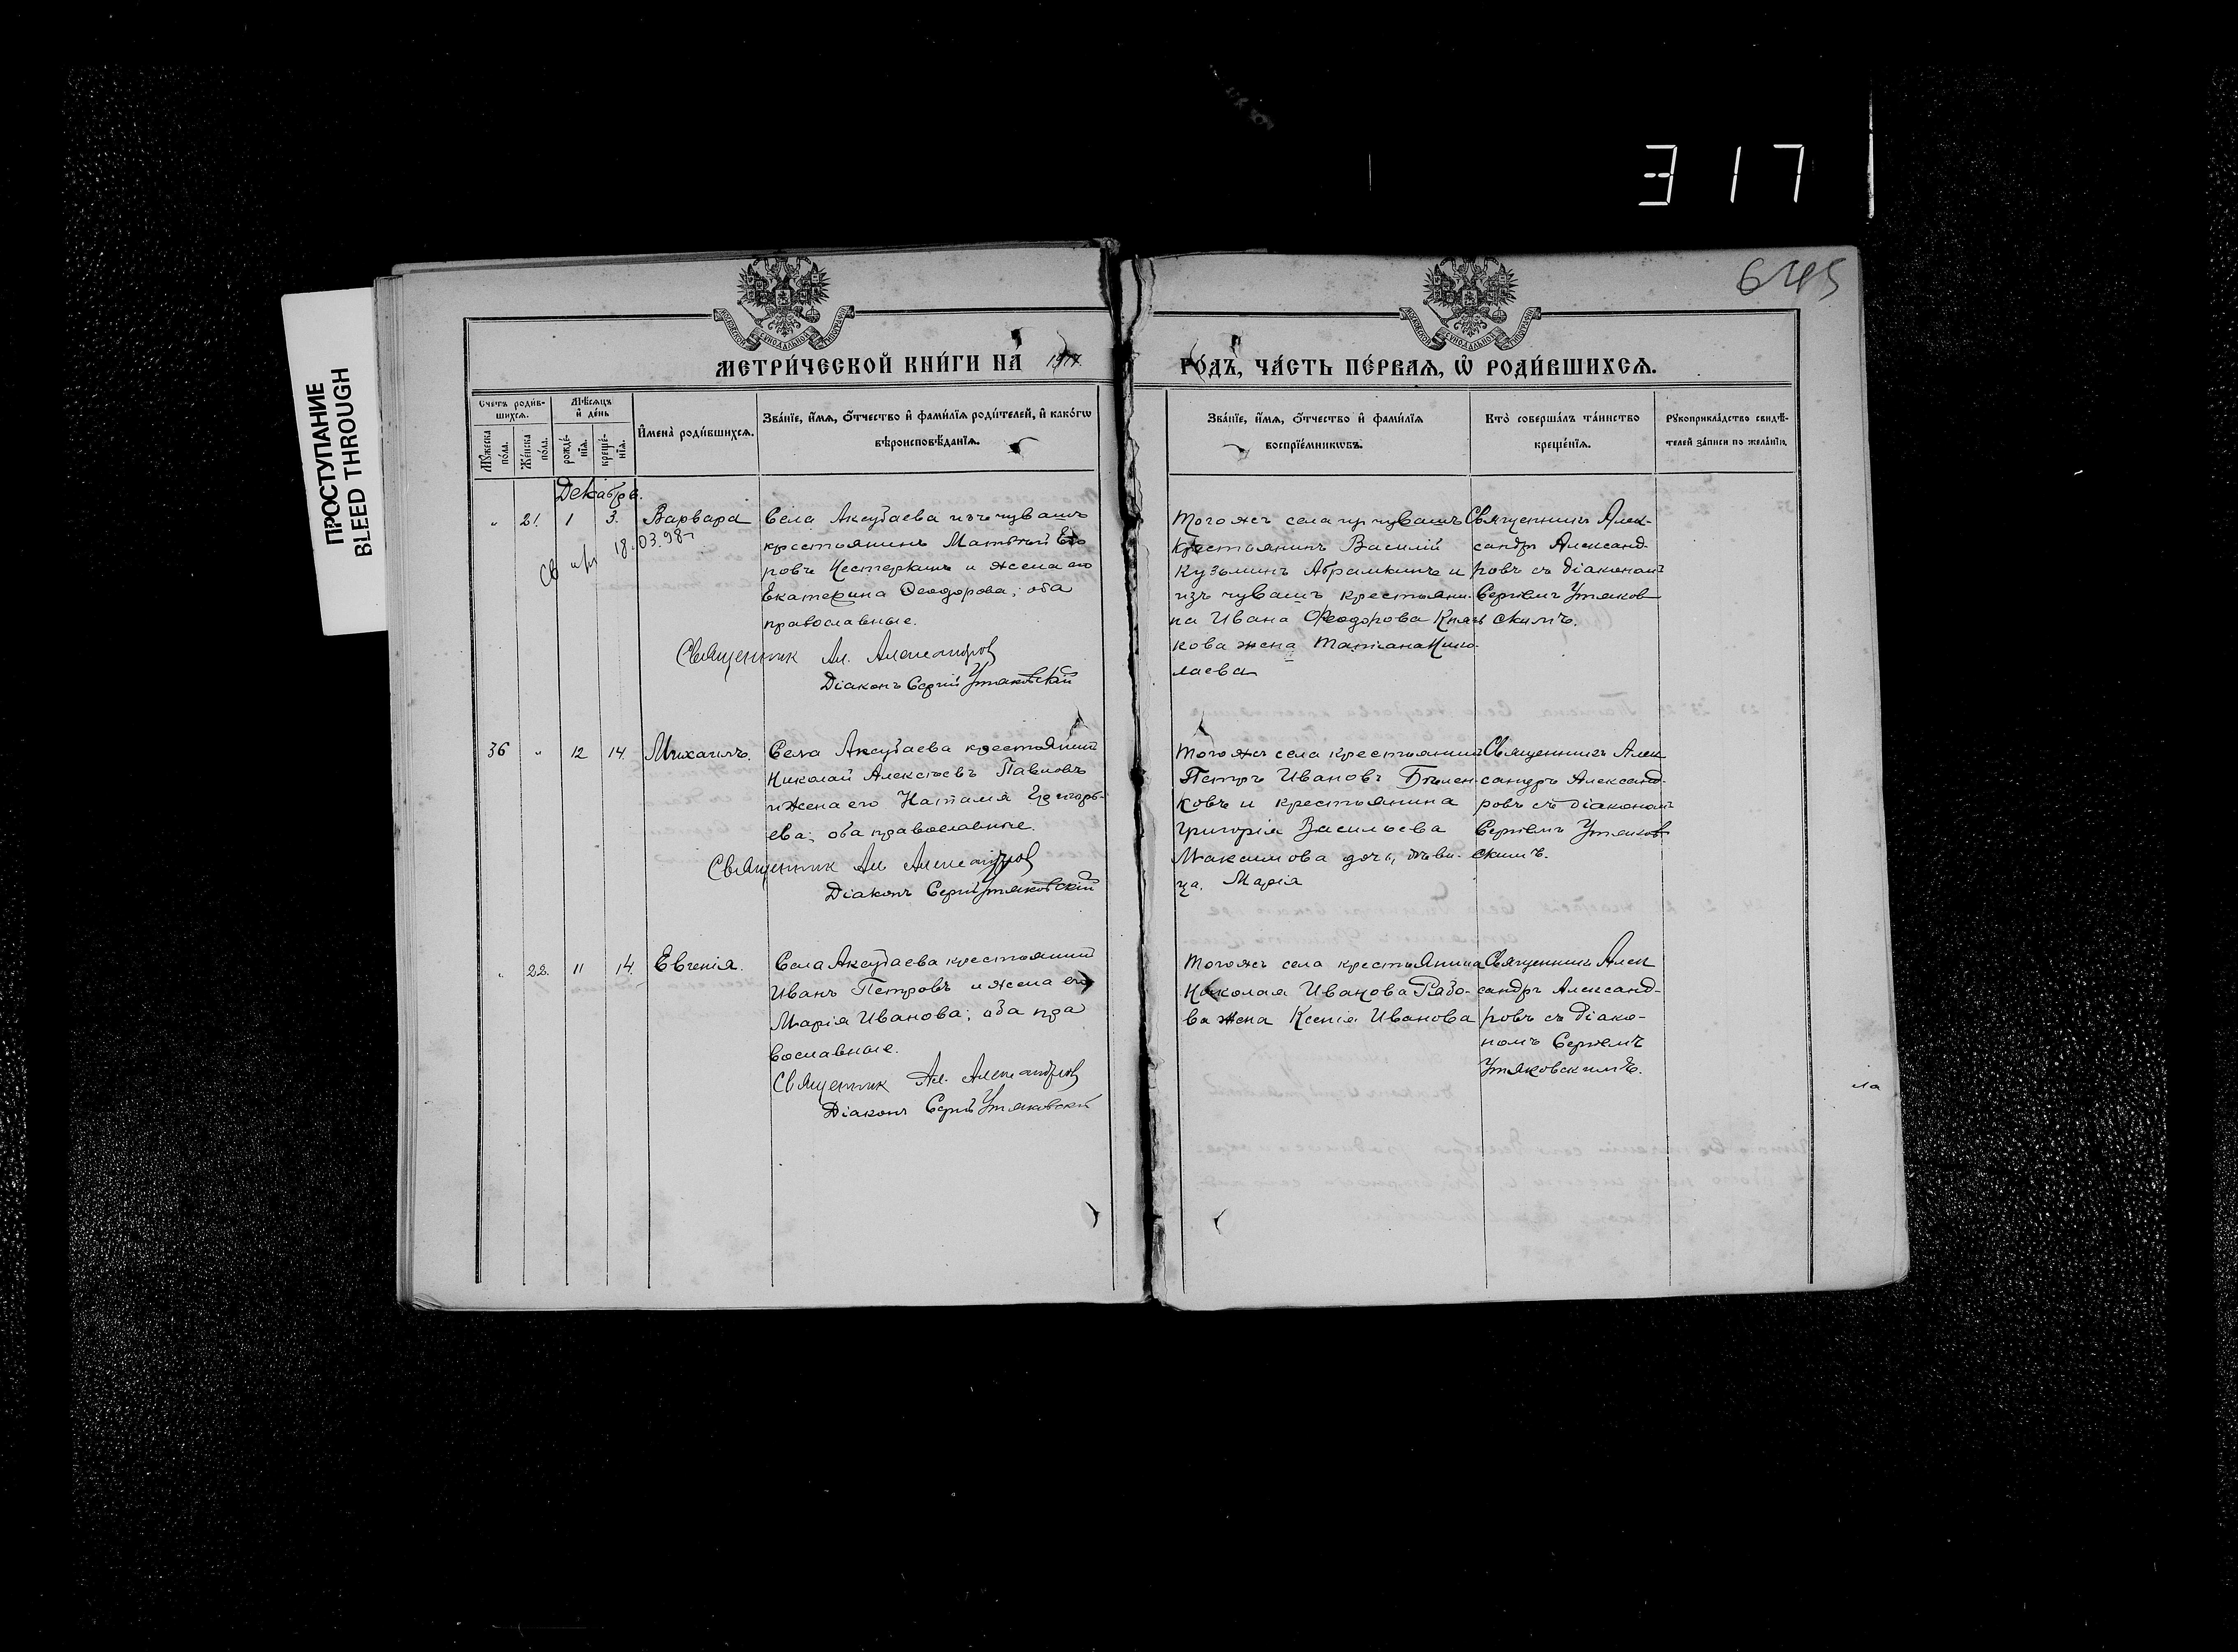 317
645
ПРОСТУПАНИЕ
BLEED THROUGH
МЕТРИ́ЧЕСКОЙ КНИ́ГИ НА́ 1917.
ГО́ДЪ, ЧА́СТЬ ПЕ́РВАѦ, Ѡ҆ РОДИ́ВШИХСѦ.
Счетъ роди́в-
шихсѧ.
Мꙋ́жеска
по́ла.
Же́нска
по́ла.
Мѣ́сѧцъ
и҆ де́нь
рожде́-
нїѧ.
креще́-
нїѧ.
И҆мена̀ роди́вшихсѧ.
Зва́нїе, и҆́мѧ, ѻ҆́тчество и҆ фами́лїѧ роди́телей, и҆ како́гѡ
вѣроисповѣ́данїѧ.
Зва́нїе, и҆́мѧ, ѻ҆́тчество и҆ фами́лїѧ
воспрїе́мникѡвъ.
Кто̀ соверша́лъ та́инство
креще́нїѧ.
Рꙋкоприкла́дство свидѣ́-
телей за́писи по жела́нїю.
Декабрь.
" 21. 1 3. Варвара
18.03.98г
Села Аксубаева изъ чувашъ
крестьянинъ Матвей Его
ровъ Нестеркинъ и жена его
Екатерина Ѳеодорова; оба
православные.
Священник Ал. Александров
Діаконъ Сергій Утяковскій
Того же села из чувашъ
Крестьянинъ Василій
Кузьминъ Абрамкинъ и
изъ чувашъ крестьяни-
на Ивана Ѳеодорова Князь
кова жена Татіана Нико-
лаева
Священникъ Алек-
сандръ Александ-
ровъ съ діакономъ
Сергіемъ Утяков
скимъ.
36 " 12 14. Михаилъ.
Села Аксубаева крестьянинъ
Николай Алексѣевъ Павловъ
и жена его Наталія Григорь-
ева; оба православные.
Священник Ал Александров
Діаконъ Сергій Утяковскій
Того же села крестьянинъ
Петръ Ивановъ Бѣлен-
ковъ и крестьянина
Григорія Васильева
Максимова дочь, дѣви-
ца, Марія
Священникъ Алек
сандръ Александ-
ровъ съ діакономъ
Сергіемъ Утяков
скимъ.
" 22. 11 14. Евгенія.
Села Аксубаева крестьянинъ
Иванъ Петровъ и жена его
Марія Иванова; оба пра
вославные.
Священник Ал. Александров
Діаконъ Сергій Утяковскій
Того же села крестьянина
Николая Иванова Рабо-
ва жена Ксенія Иванова
Священникъ Алек
сандръ Александ-
ровъ съ діако-
номъ Сергіемъ
Утяковскимъ.